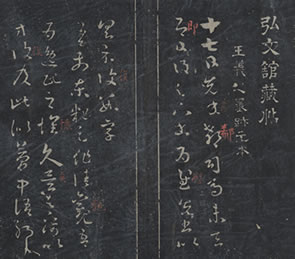 弘文館藏帖
王羲之
十七日先書郗司馬未去
即日得足下書為慰先書以
具示復數字
吾前東粗足作佳觀吾
為逸民之懷久矣足下何以
方復及此似夢中語耶無